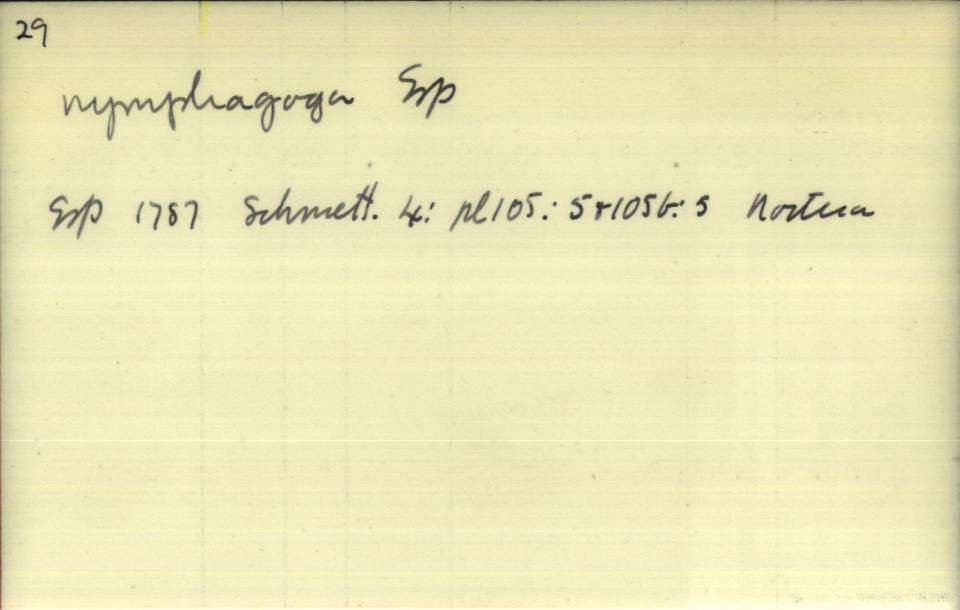 29
nymphagoga Esp
Esp 1787 Schmett. 4: pl105: 5 & 105b: 5 Noctua